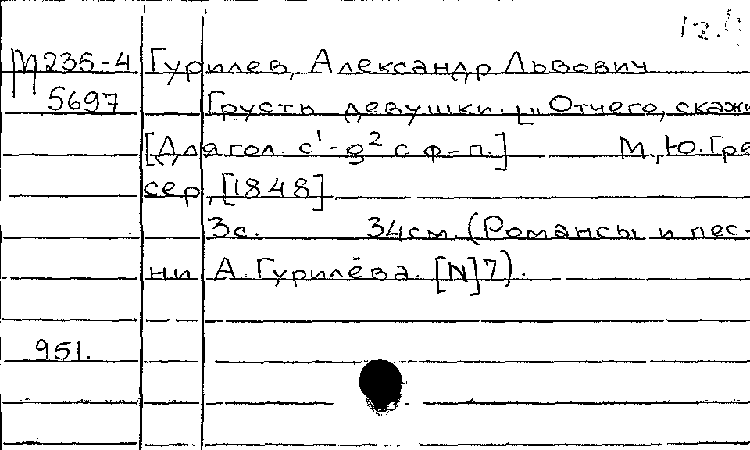 12.
М235-4 Гурилев, Александр Львович
5697 Грусть девушки. [„Отчего, скажи
[Для гол. c¹-g² с ф-п.] М., Ю. Гре
сер, [1848]
3с. 34см. (Романсы и пес-
ни А. Гурилёва. [N]7).
951.